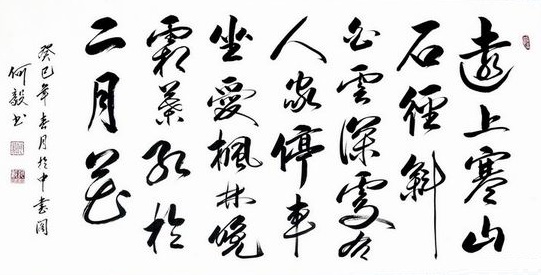 遠上寒山
石徑斜
白雲深處有
人家停車
坐愛楓林晚
霜葉紅於
二月花
癸巳年春月於中書閣
何毅書